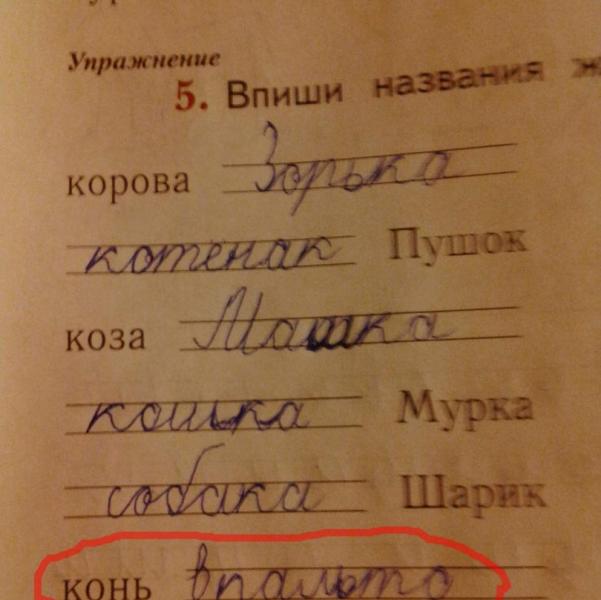 Упражнение
5. Впиши названия ж
корова Зорька
котенак Пушок
коза Машка
кошка Мурка
собака Шарик
конь впальто